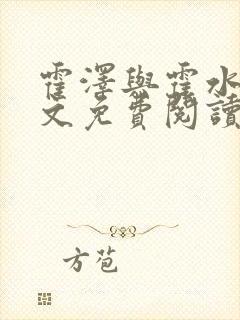 霍澤與霍水
文免費閱讀
方苞